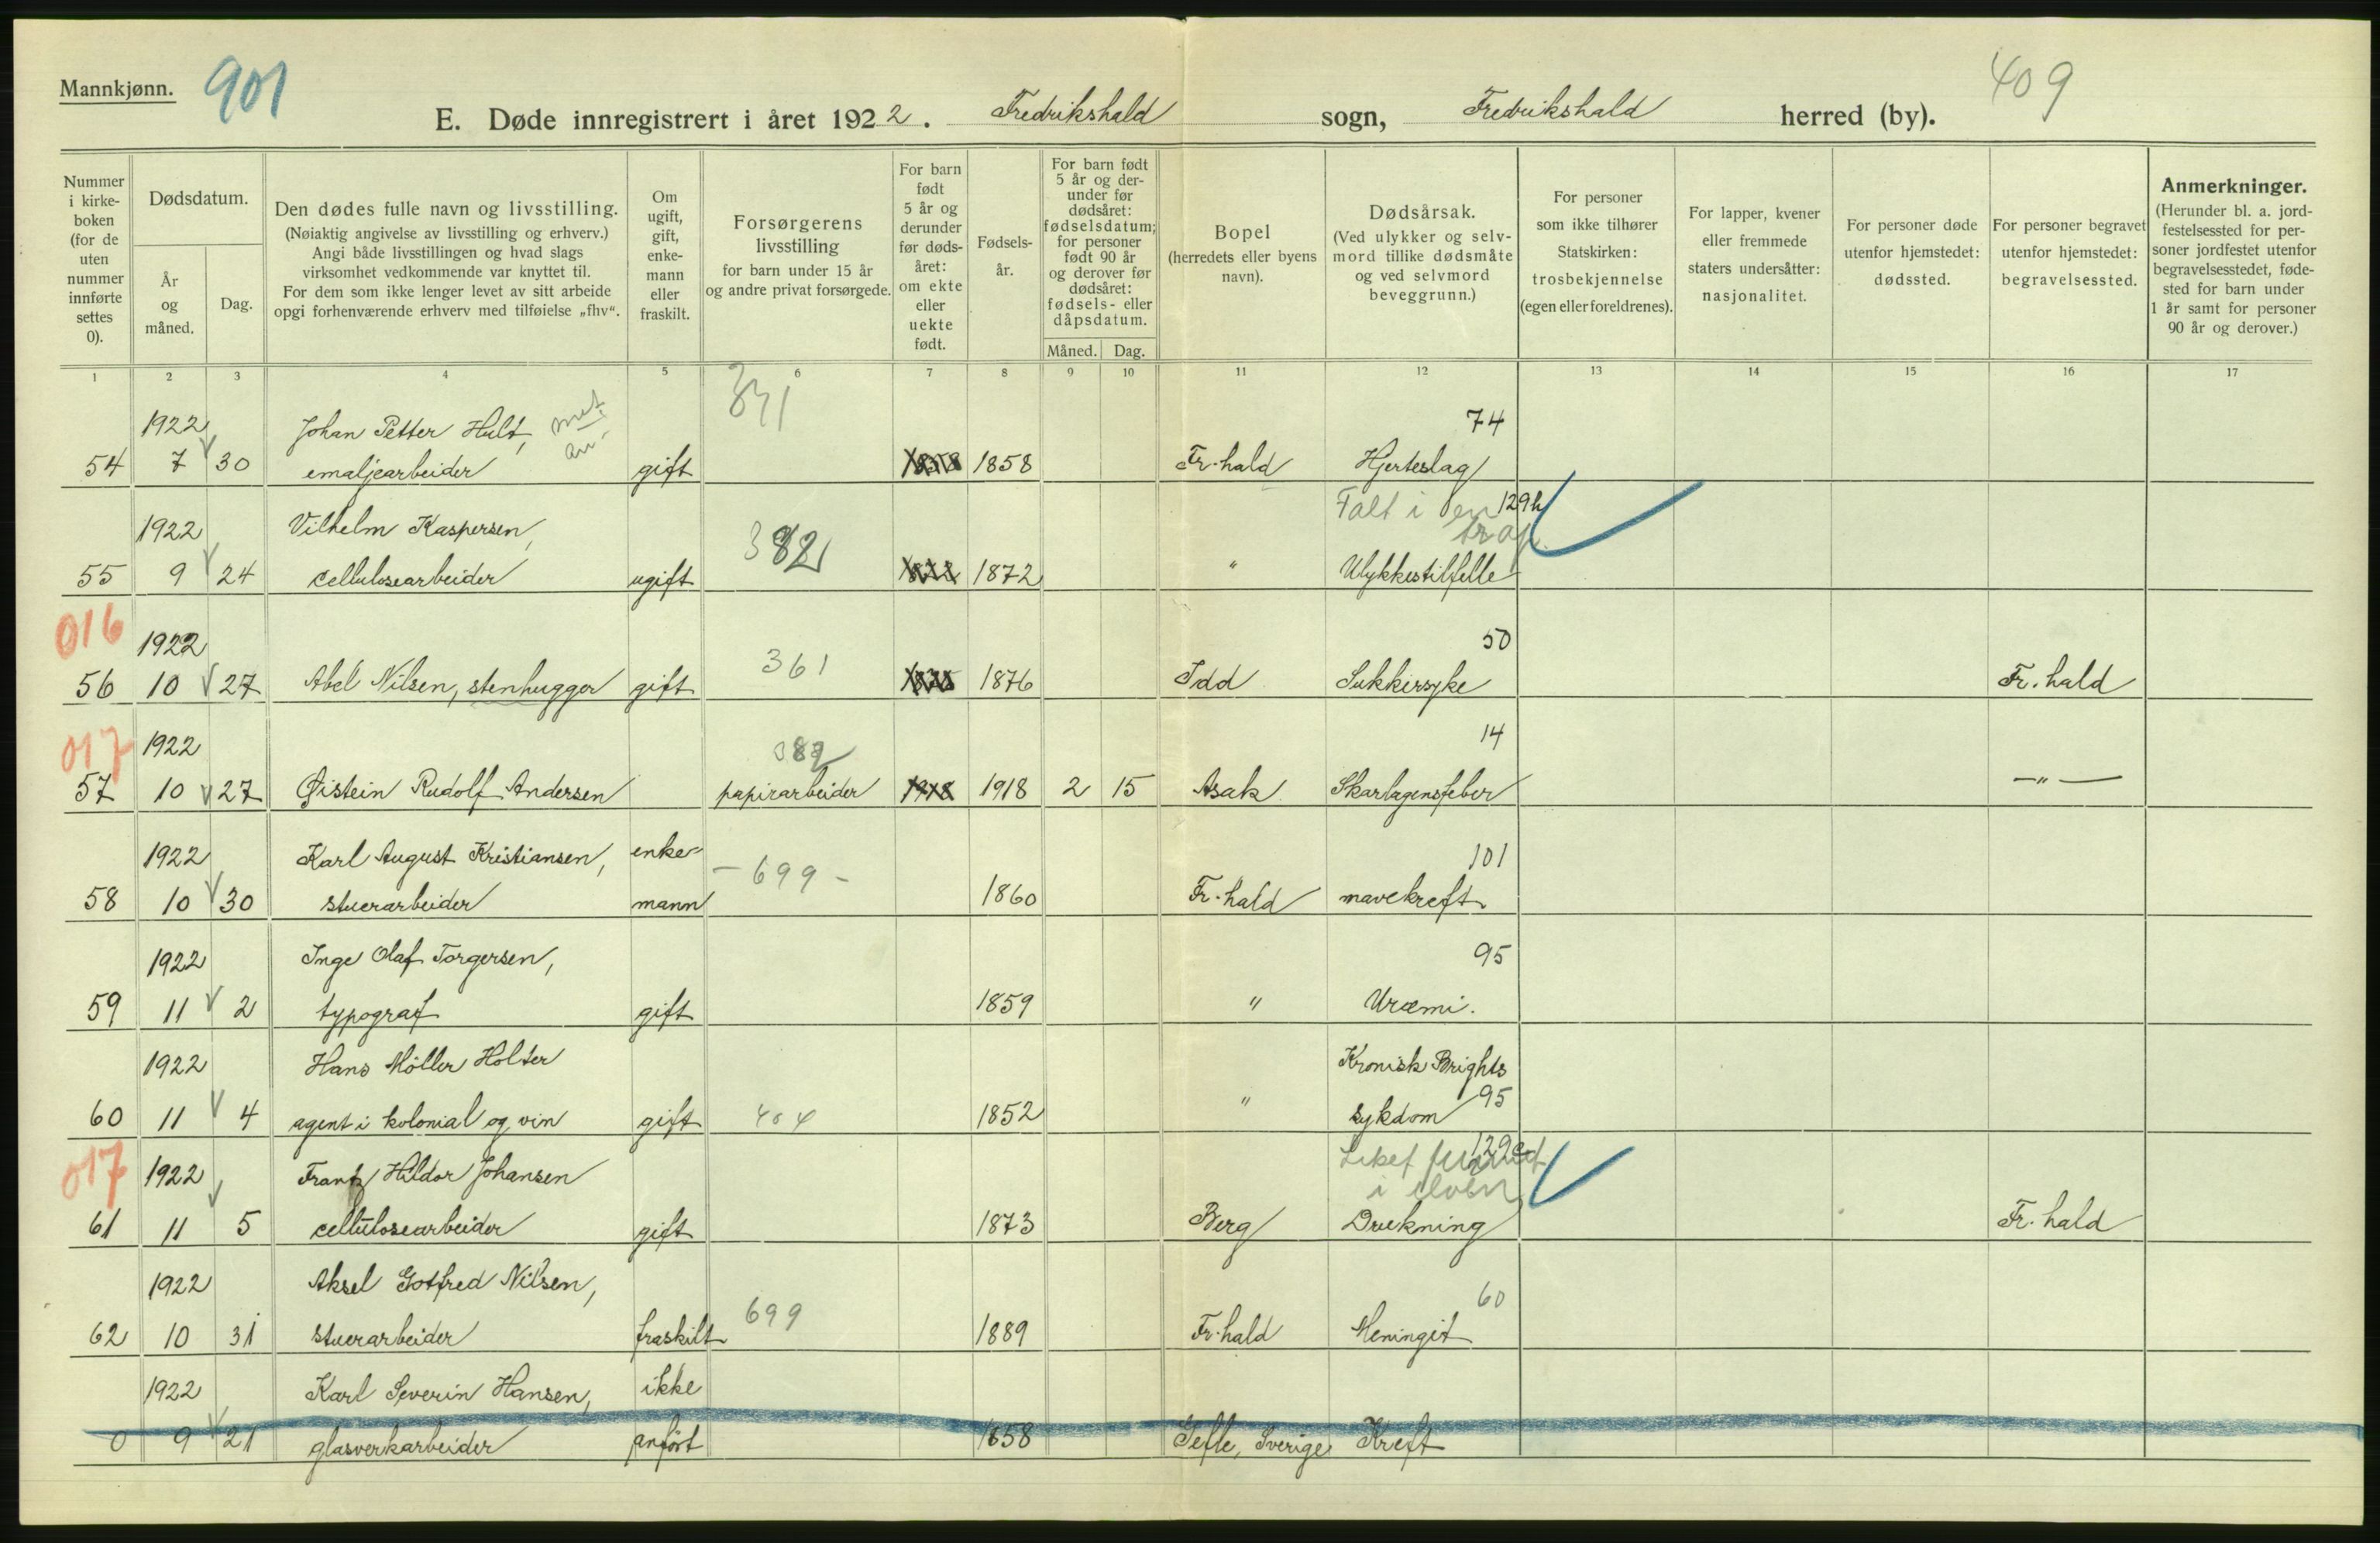 Mannkjønn.
901
409
E. Døde innregistrert i året 1922. Fredrikshald sogn, Fredrikshald herred (by).
Nummer
i kirke-
boken
(for de
uten
nummer
innførte
settes
0).
Dødsdatum.
År
og
måned.
Dag.
Den dødes fulle navn og livsstilling.
(Nøiaktig angivelse av livsstilling og erhverv.)
Angi både livsstillingen og hvad slags
virksomhet vedkommende var knyttet til.
For dem som ikke lenger levet av sitt arbeide
opgi forhenværende erhverv med tilføielse „fhv“.
Om
ugift,
gift,
enke-
mann
eller
fraskilt.
Forsørgerens
livsstilling
for barn under 15 år
og andre privat forsørgede.
For barn
født
5 år og
derunder
før døds-
året:
om ekte
eller
uekte
født.
Fødsels-
år.
For barn født
5 år og der-
under før
dødsåret:
fødselsdatum;
for personer
født 90 år
og derover før
dødsåret:
fødsels- eller
dåpsdatum.
Måned. Dag.
Bopel
(herredets eller byens
navn).
Dødsårsak.
(Ved ulykker og selv-
mord tillike dødsmåte
og ved selvmord
beveggrunn.)
For personer
som ikke tilhører
Statskirken:
trosbekjennelse
(egen eller foreldrenes).
For lapper, kvener
eller fremmede
staters undersåtter:
nasjonalitet.
For personer døde
utenfor hjemstedet:
dødssted.
For personer begravet
utenfor hjemstedet:
begravelsessted.
Anmerkninger.
(Herunder bl. a. jord-
festelsessted for per-
soner jordfestet utenfor
begravelsesstedet, føde-
sted for barn under
1 år samt for personer
90 år og derover.)
1 2 3 4 5 6 7 8 9 10 11 12 13 14 15 16 17
1922 Johan Petter Hult, 74
54 7 30 emaljearbeider gift 1858 Fr.hald Hjerteslag
Falt i en 129h
trap.
1922 Vilhelm Kaspersen, 382
55 9 24 cellulosearbeider ugift 1872 " Ulykkestilfelle
016
1922 361 50
56 10 27 Abel Nilsen, stenhugger gift 1876 Idd Sukkersyke Fr. hald
017
1922 382 14
57 10 27 Øistein Rudolf Andersen papirarbeider 1918 1918 2 15 Asak Skarlagensfeber —"—
1922 Karl August Kristiansen, enke- -699- 101
58 10 30 stuerarbeider mann 1860 Fr.hald mavekreft
1922 Inge Olaf Torgersen, 95
59 11 2 typograf gift 1859 " Uræmi.
1922 Hans Möller Holter Kronisk Brights
60 11 4 agent i kolonial og vin gift 404 1852 " sykdom 95
017
1922 Frantz Hildor Johansen Liket funnet 129
i elven
61 11 5 cellulosearbeider gift 1873 Berg Drukning Fr. hald
1922 Aksel Gotfred Nilsen, 699 60
62 10 31 stuerarbeider fraskilt 1889 Fr.hald Meningit
1922 Karl Severin Hansen, ikke
0 9 21 glasverkarbeider anført 1858 Gefle, Sverige Kreft